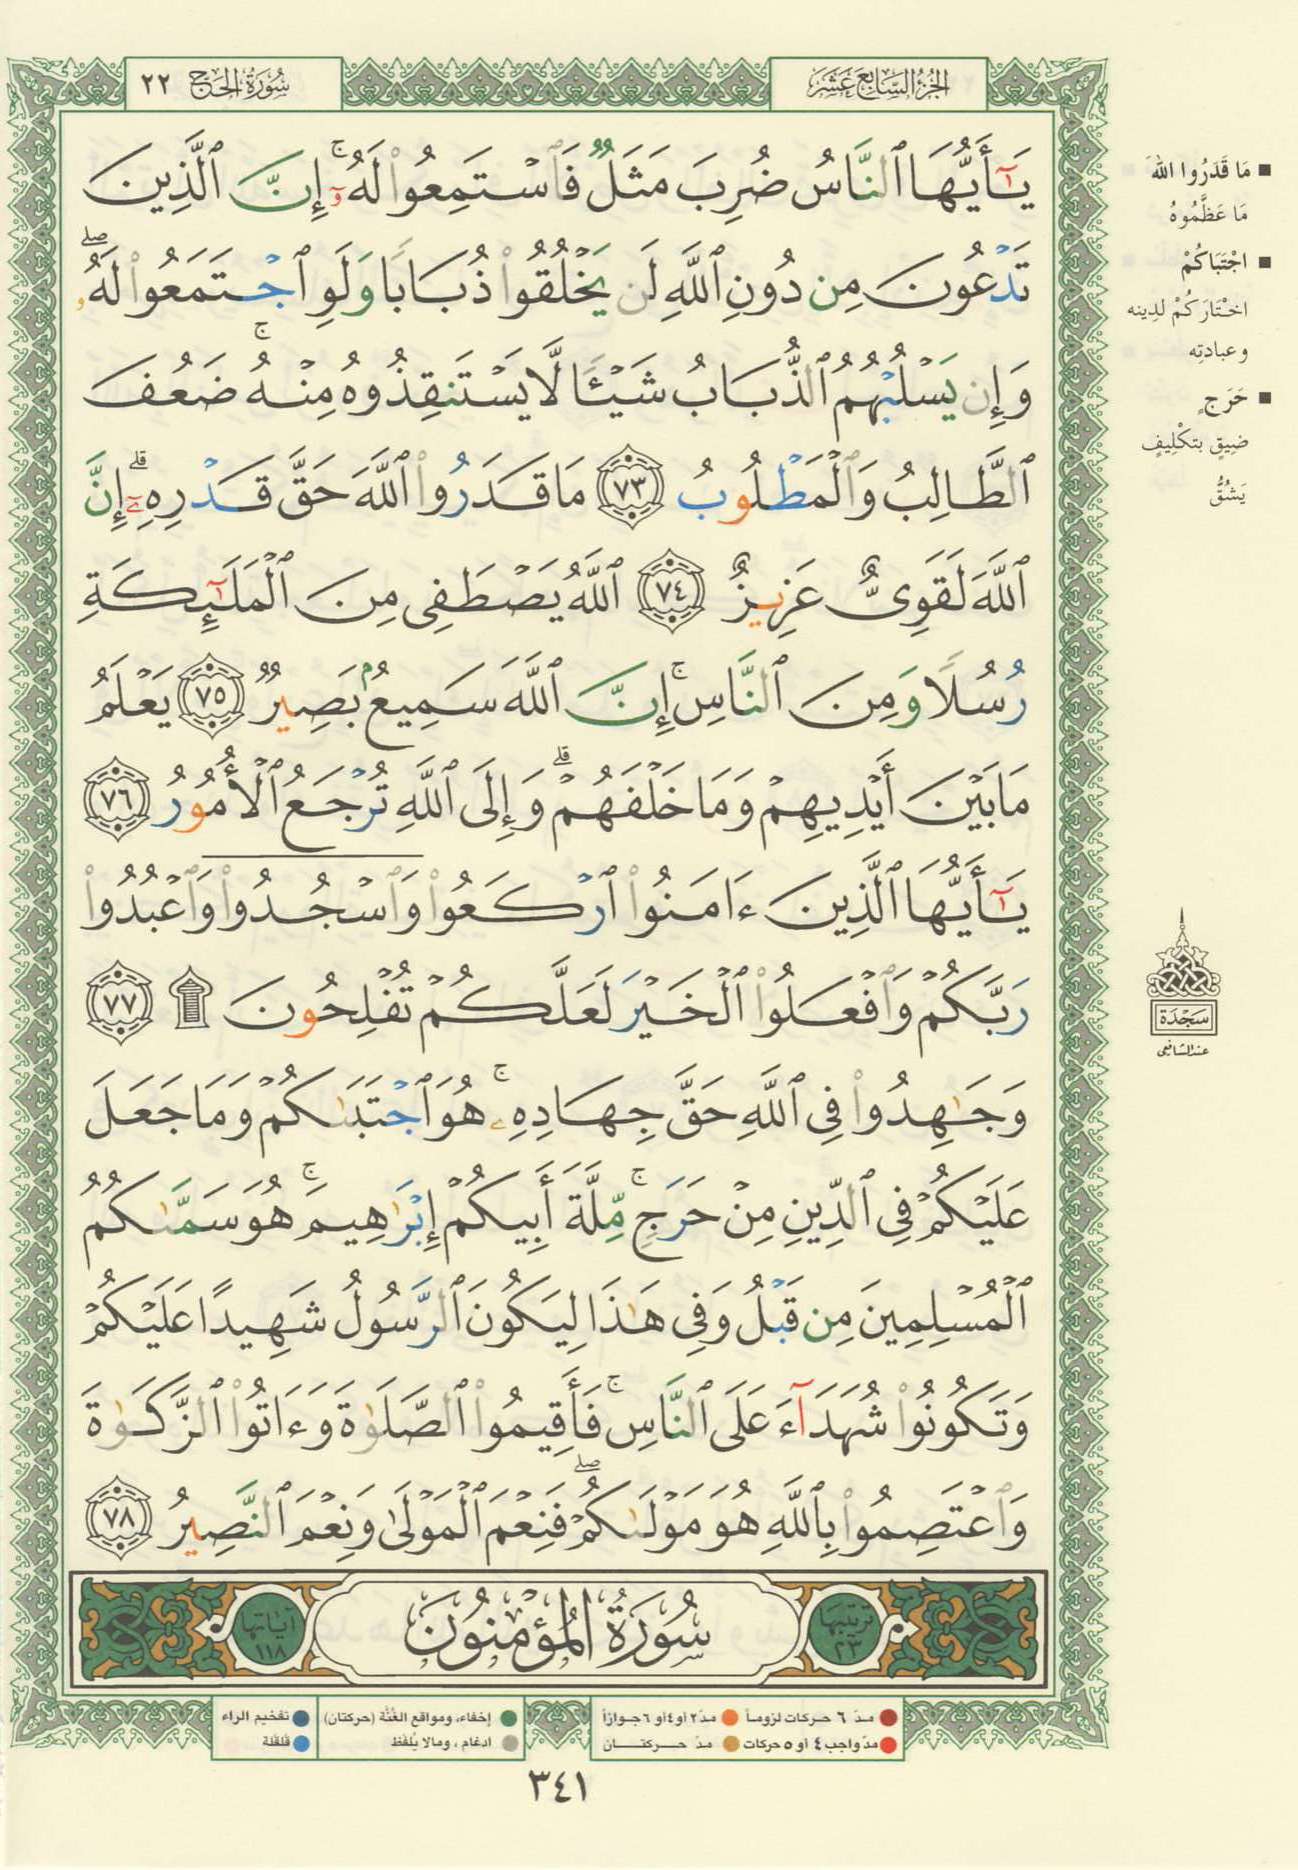 الجزء السابع عشر
سورة الحج ٢٢
يَٰٓأَيُّهَا ٱلنَّاسُ ضُرِبَ مَثَلٌ فَٱسْتَمِعُوا۟ لَهُۥٓ ۚ إِنَّ ٱلَّذِينَ
تَدْعُونَ مِن دُونِ ٱللَّهِ لَن يَخْلُقُوا۟ ذُبَابًا وَلَوِ ٱجْتَمَعُوا۟ لَهُۥ ۖ
وَإِن يَسْلُبْهُمُ ٱلذُّبَابُ شَيْـًٔا لَّا يَسْتَنقِذُوهُ مِنْهُ ۚ ضَعُفَ
ٱلطَّالِبُ وَٱلْمَطْلُوبُ ٧٣ مَا قَدَرُوا۟ ٱللَّهَ حَقَّ قَدْرِهِۦٓ ۗ إِنَّ
ٱللَّهَ لَقَوِىٌّ عَزِيزٌ ٧٤ ٱللَّهُ يَصْطَفِى مِنَ ٱلْمَلَٰٓئِكَةِ
رُسُلًا وَمِنَ ٱلنَّاسِ ۚ إِنَّ ٱللَّهَ سَمِيعٌۢ بَصِيرٌ ٧٥ يَعْلَمُ
مَا بَيْنَ أَيْدِيهِمْ وَمَا خَلْفَهُمْ ۗ وَإِلَى ٱللَّهِ تُرْجَعُ ٱلْأُمُورُ ٧٦
يَٰٓأَيُّهَا ٱلَّذِينَ ءَامَنُوا۟ ٱرْكَعُوا۟ وَٱسْجُدُوا۟ وَٱعْبُدُوا۟
رَبَّكُمْ وَٱفْعَلُوا۟ ٱلْخَيْرَ لَعَلَّكُمْ تُفْلِحُونَ ۩ ٧٧
وَجَٰهِدُوا۟ فِى ٱللَّهِ حَقَّ جِهَادِهِۦ ۚ هُوَ ٱجْتَبَىٰكُمْ وَمَا جَعَلَ
عَلَيْكُمْ فِى ٱلدِّينِ مِنْ حَرَجٍ ۚ مِّلَّةَ أَبِيكُمْ إِبْرَٰهِيمَ ۚ هُوَ سَمَّىٰكُمُ
ٱلْمُسْلِمِينَ مِن قَبْلُ وَفِى هَٰذَا لِيَكُونَ ٱلرَّسُولُ شَهِيدًا عَلَيْكُمْ
وَتَكُونُوا۟ شُهَدَآءَ عَلَى ٱلنَّاسِ ۚ فَأَقِيمُوا۟ ٱلصَّلَوٰةَ وَءَاتُوا۟ ٱلزَّكَوٰةَ
وَٱعْتَصِمُوا۟ بِٱللَّهِ هُوَ مَوْلَىٰكُمْ ۖ فَنِعْمَ ٱلْمَوْلَىٰ وَنِعْمَ ٱلنَّصِيرُ ٧٨
ترتيبها ٢٣ سُورَةُ الْمُؤْمِنُونَ آياتها ١١٨
■ مَا قَدَرُوا اللهَ
مَا عَظَّمُوهُ
■ اجْتَبَاكُمْ
اخْتَارَكُمْ لدِينه
وعبادتِه
■ حَرَجٍ
ضِيقٍ بتكْلِيفٍ
يَشُقُّ
سَجْدَة
عند الشافعي
مدّ ٦ حركات لزوماً مدّ ٢ أو ٤ أو ٦ جوازاً إخفاء، ومواقع الغُنَّة (حركتان) تفخيم الراء
مدّ واجب ٤ أو ٥ حركات مدّ حركتان ادغام، ومالا يُلفَظ قلقلة
٣٤١